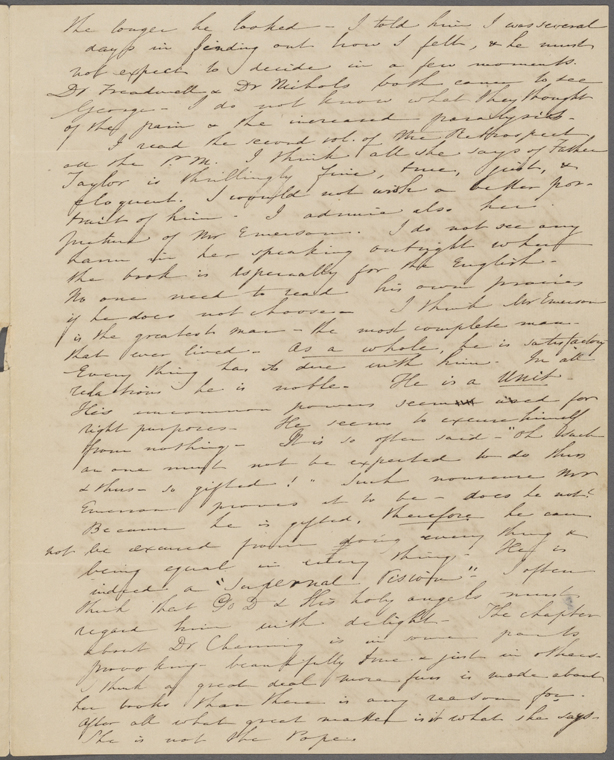 the longer he looked - I told him I was several
days in finding out how I felt, & he must
not expect to decide in a few moments.
Dr Treadwell & Dr Nichols both came to see
George - I do not know what they thought
of the pain & the increased paralysis -
I read the second vol. of the Retrospect
all the P.M. I think all she says of Father
Taylor is thrillingly fine, true, just, &
eloquent. I would not wish a better por-
trait of him - I admire also her
picture of Mr Emerson. I do not see any
harm in her speaking outright when
the book is especially for the English -
No one need to read his own praises
if he does not choose - I think Mr Emerson
is the greatest man - the most complete man
that ever lived - As a whole, he is satisfactory
Every thing has its due with him. In all
relations he is noble. He is a Unit
His uncommon powers seem used for
right purposes - He seems to excuse himself
from nothing - It is so often said - "Oh such
an one must not be expected to do thus
& thus - so gifted!" Such nonsense Mr
Emerson proves it to be - does he not?
Because he is gifted, therefore he can
not be excused from doing every thing &
being equal in every thing. He is
indeed a "Supernal Vision" - I often
think that GoD & His holy angels must
regard him with delight - The chapter
about Dr. Channing is in some parts
provoking - beautifully true & just in others.
I think a great deal more fuss is made about
her books than there is any reason for.
After all what great matter is it what she says -
She is not the Pope